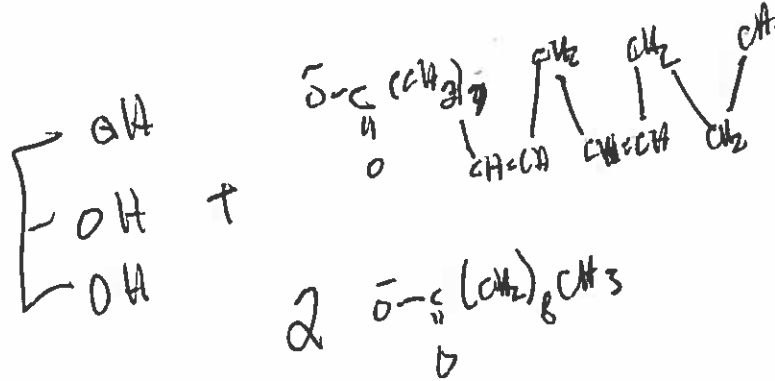 OH
OH
OH
+
O⁻-C(CH2)7
O
CH=CH
CH2
CH=CH
CH2
CH2
CH3
2 O⁻-C(CH2)8CH3
O